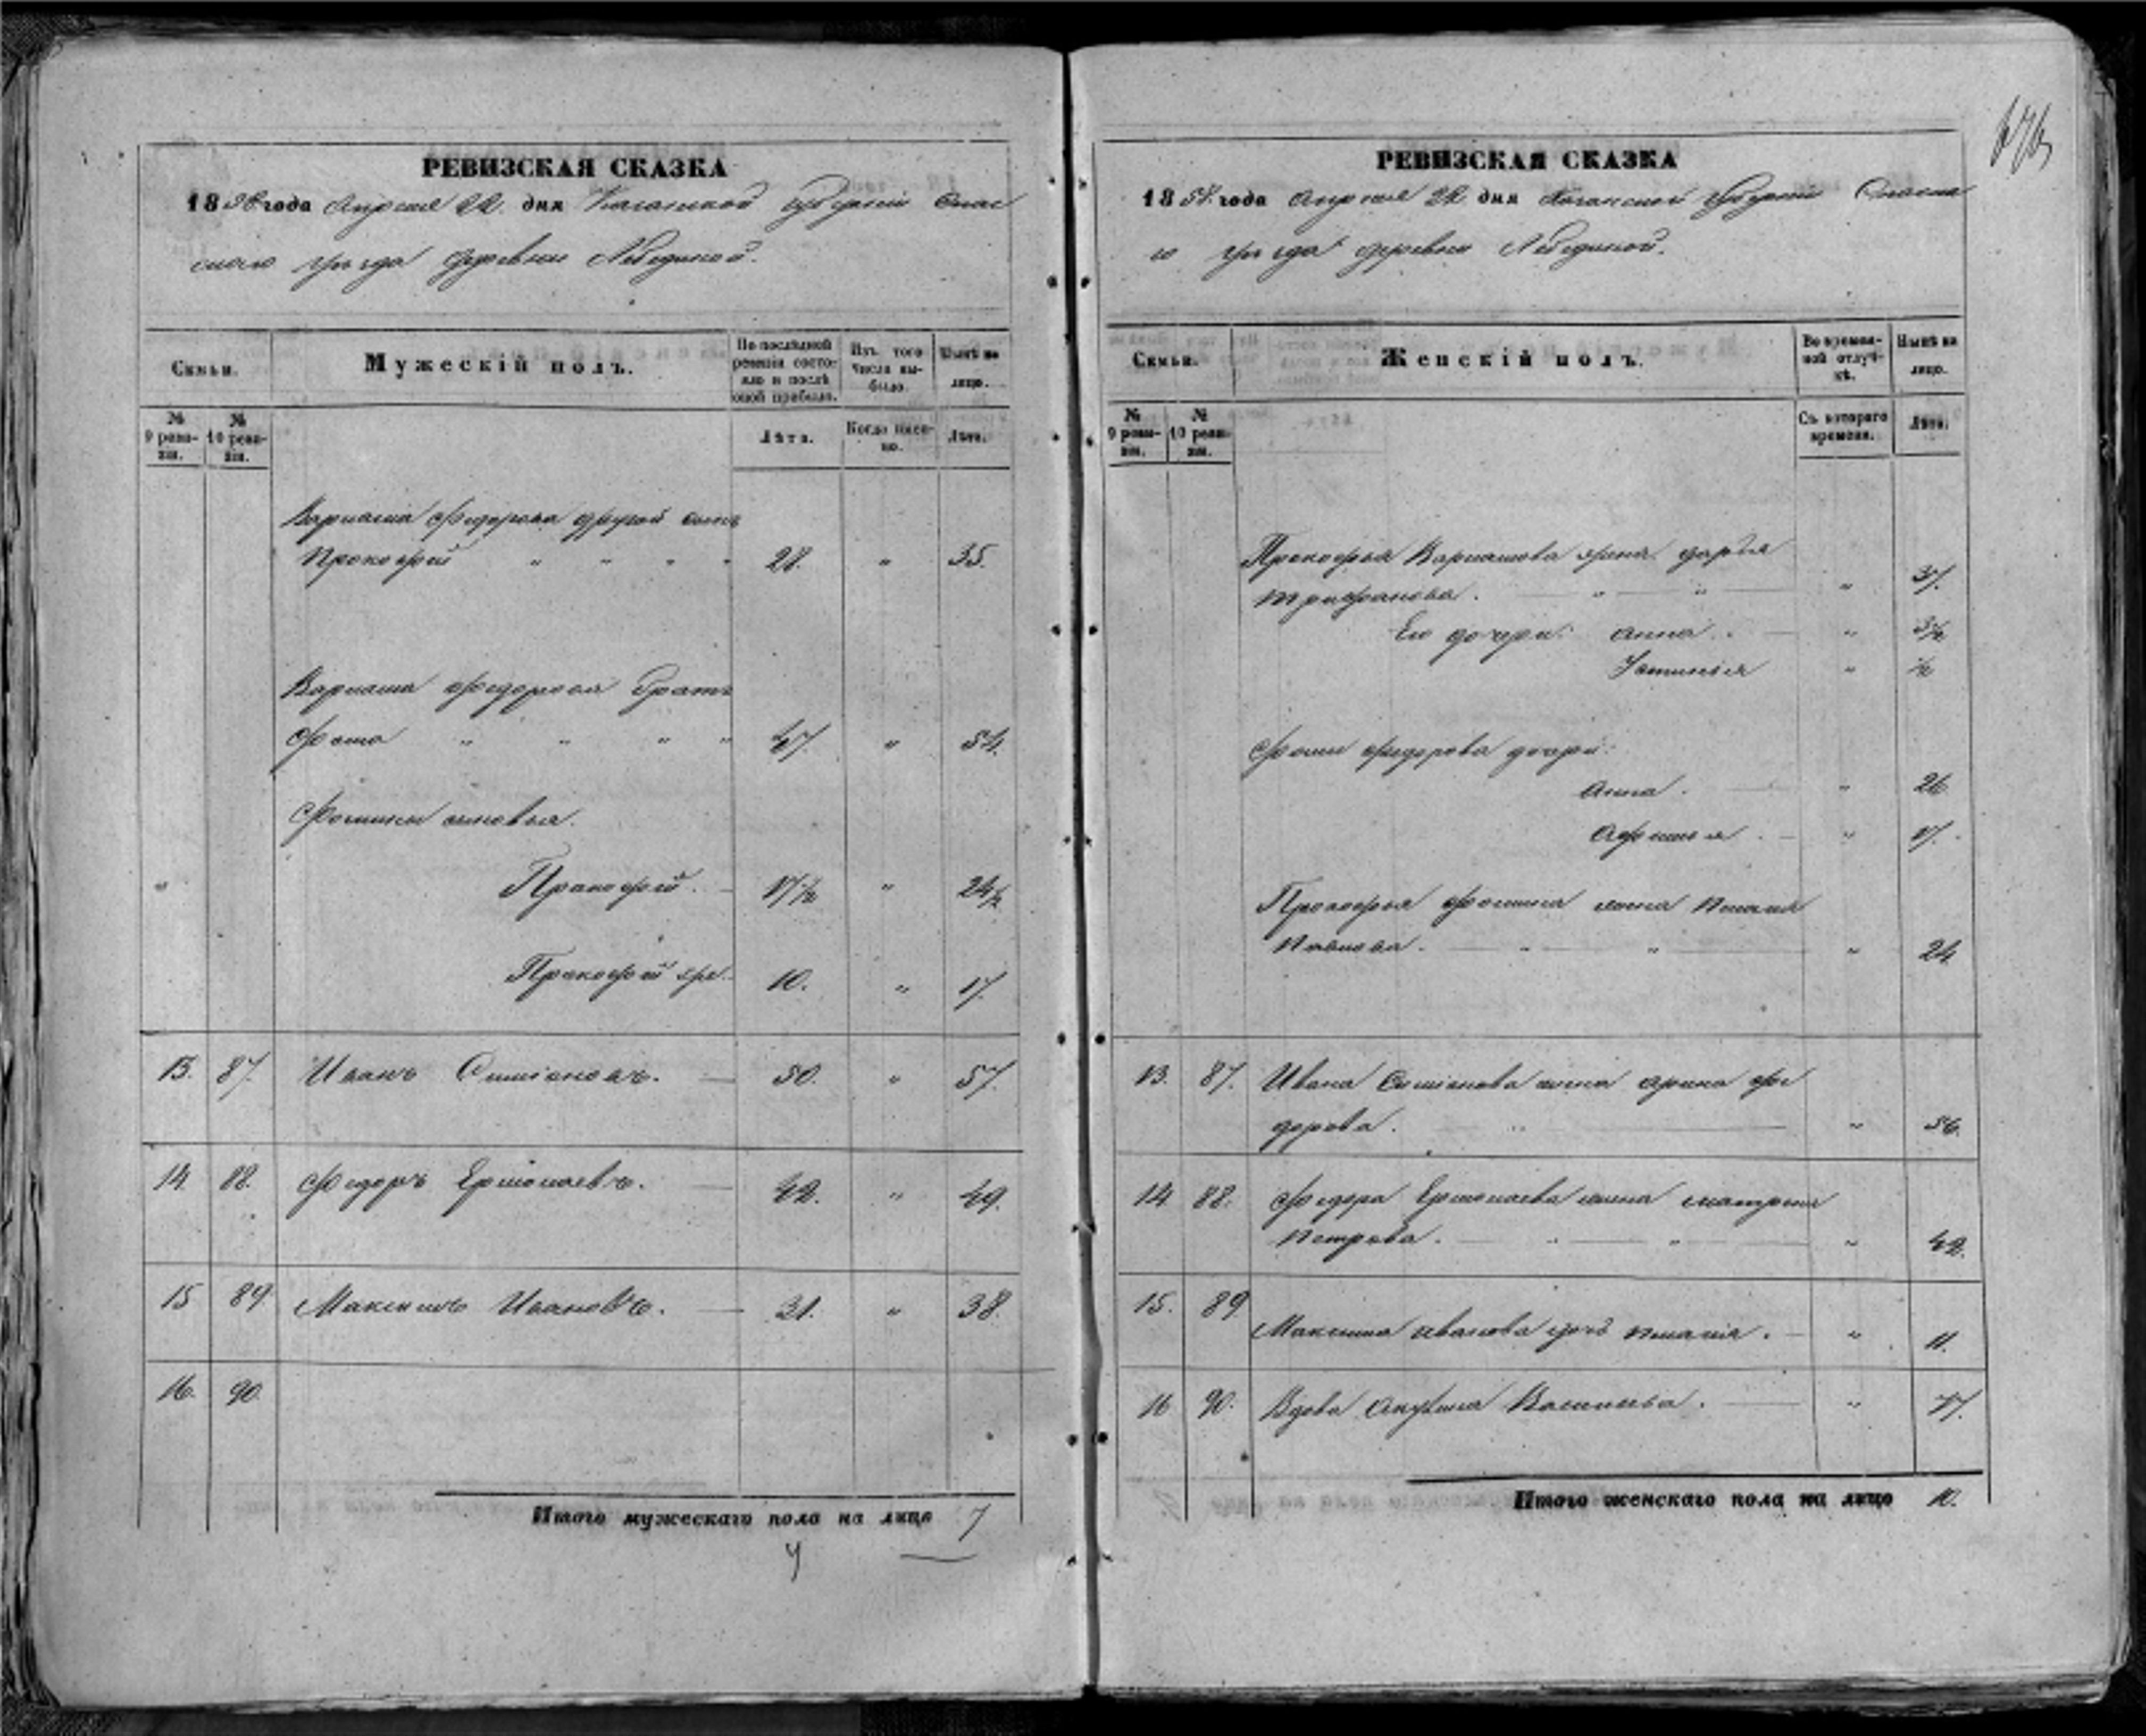 РЕВИЗСКАЯ СКАЗКА
1858 года Апреля 22. дня Казанской Губернiи Спас
скаго уѣзда деревни Лебединой.
Семьи.
Мужескiй полъ.
По послѣдней ревизiи состояло и послѣ оной прибыло.
Изъ того числа выбыло.
Нынѣ на лицо.
№ 9 ревизiи.
№ 10 ревизiи.
Лѣта.
Когда именно.
Лѣта.
Варлама Федорова другой сынъ
Прокофей " " " " 28. " 35.
Варлама Федорова братъ
Фома " " " " 47. " 54.
Фомины сыновья.
" Прокофей. 17½ " 24½
Прокофей же. 10. " 17.
13. 87. Иванъ Симiоновъ. 50. " 57.
14. 88. Федоръ Ермолаевъ. 42. " 49.
15 89 Максимъ Ивановъ. 31. " 38.
16. 90.
Итого мужескаго пола на лицо 7
РЕВИЗСКАЯ СКАЗКА
1858. года Апреля 22. дня Казанской Губернiи Спасска
го уѣзда деревни Лебединой.
Семьи.
Женскiй полъ.
Во временной отлучкѣ.
Нынѣ на лицо.
№ 9 ревизiи.
№ 10 ревизiи.
Съ котораго времени.
Лѣта.
Прокофья Варламова жена Дарья
Трифанова. " " " 37.
Ево дочери: Анна. " 3½
Устинья " ½
Фомы Федорова дочери:
Анна. " 26
Афимья. " 17.
Прокофья Фомина жена
Павлова. " " " 24
13. 87. Ивана Симiонова жена Арина Фе
дорова. " " 56.
14 88. Федора Ермолаева жена Матрена
Петрова. " " " 42.
15. 89
Максима Иванова дочь. " 11.
16 90. Вдова Акулина Васильева. " 77.
Итого женскаго пола на лицо 10.